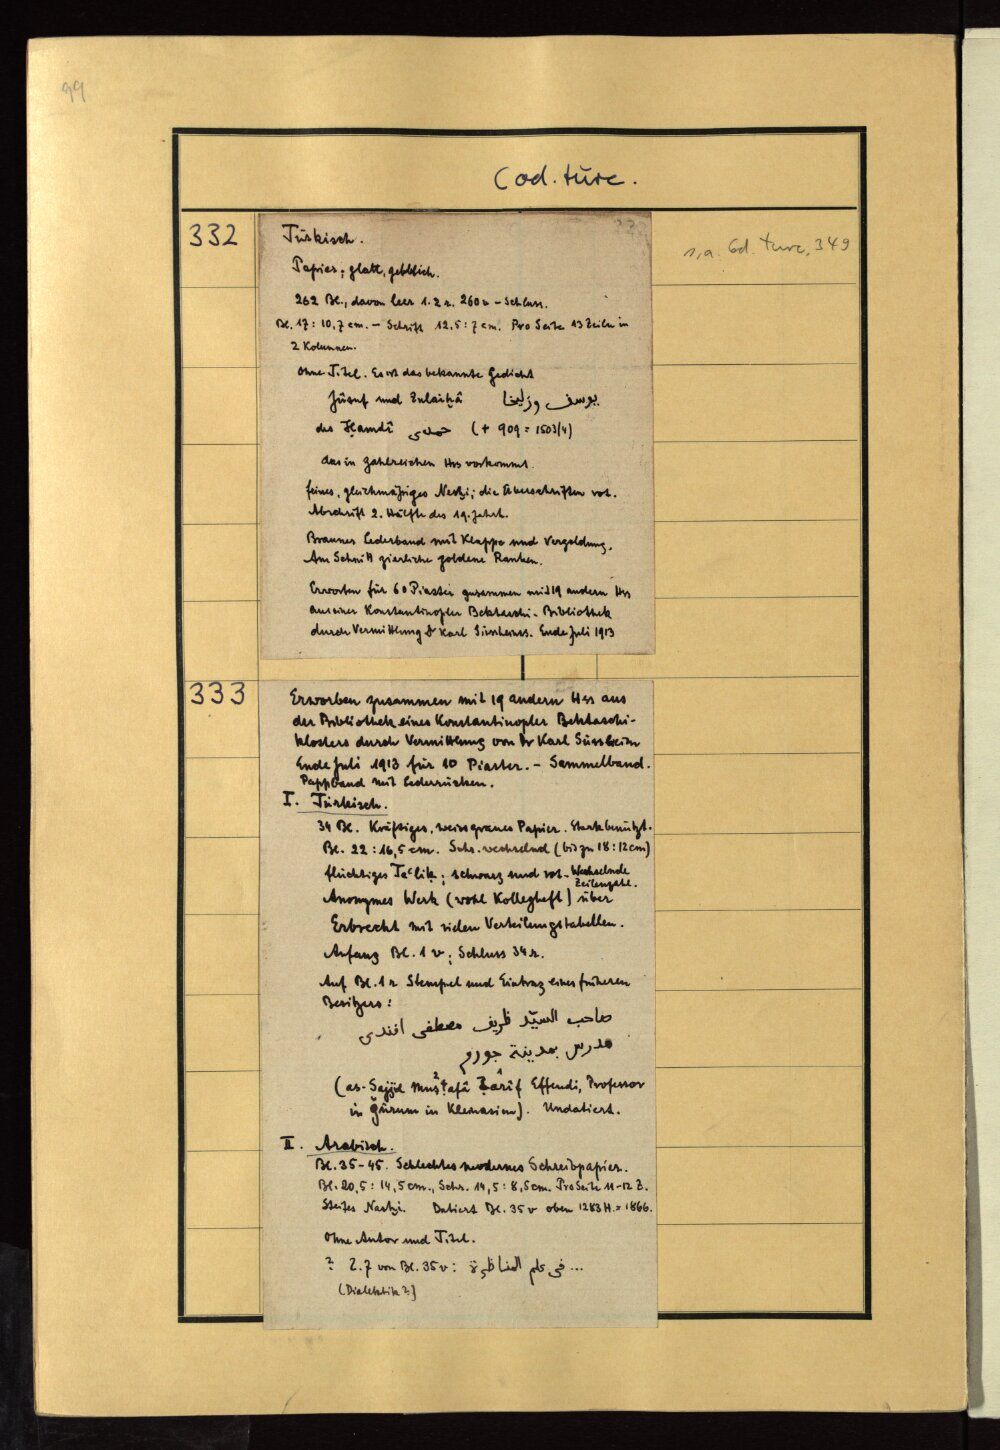 99
Cod. turc.
332
Türkisch.
s. a. Cod. turc. 349
Papier; glatt, gelblich.
262 Bl., davon leer 1. 2 r. 260 v – Schluss.
Bl. 17 : 10,7 cm. – Schrift 12,5 : 7 cm. Pro Seite 13 Zeilen in
2 Kolumnen.
Ohne Titel. Es ist das bekannte Gedicht
Jûsuf und Zulaiḫâ يوسف وزليخا
des Ḥamdî حمدى († 909 = 1503/4)
das in zahlreichen Hss vorkommt.
feines, gleichmässiges Nesḫi; die Überschriften rot.
Abschrift 2. Hälfte des 19. Jahrh.
Braunes Lederband mit Klappe und Vergoldung.
Am Schnitt zierliche goldene Ranken.
Erworben für 60 Piaster zusammen mit 19 andern Hss
aus einer Konstantinopler Bektaschi-Bibliothek
durch Vermittlung Dr Karl Süssheims. Ende Juli 1913
333
Erworben zusammen mit 19 andern Hss aus
der Bibliothek eines Konstantinopler Bektaschi-
klosters durch Vermittlung von Dr Karl Süssheim
Ende Juli 1913 für 10 Piaster. – Sammelband.
Pappband mit Lederrücken.
I. Türkisch.
34 Bl. Kräftiges, weissgraues Papier. Stark benützt.
Bl. 22 : 16,5 cm. Schr. wechselnd (bis zu 18 : 12 cm)
flüchtiges Taʿliḳ; schwarz und rot. Wechselnde
Zeilenzahl.
Anonymes Werk (wohl Kollegheft) über
Erbrecht mit vielen Verteilungstabellen.
Anfang Bl. 1 v; Schluss 34 r.
Auf Bl. 1 r Stempel und Eintrag eines früheren
Besitzers:
صاحب السيّد ظريف مصطفى افندى
مدرس بمدينة جورم
(as-Sajjid Muṣṭafâ Ẓarîf Effendi, Professor
in Ǧûrum in Kleinasien). Undatiert.
II. Arabisch.
Bl. 35–45. Schlechtes modernes Schreibpapier.
Bl. 20,5 : 14,5 cm., Schr. 14,5 : 8,5 cm. Pro Seite 11–12 Z.
Steifes Nasḫi. Datiert Bl. 35 v oben 1283 H. = 1866.
Ohne Autor und Titel.
? Z. 7 von Bl. 35 v: فى علم المناظرة ...
(Dialektik?)